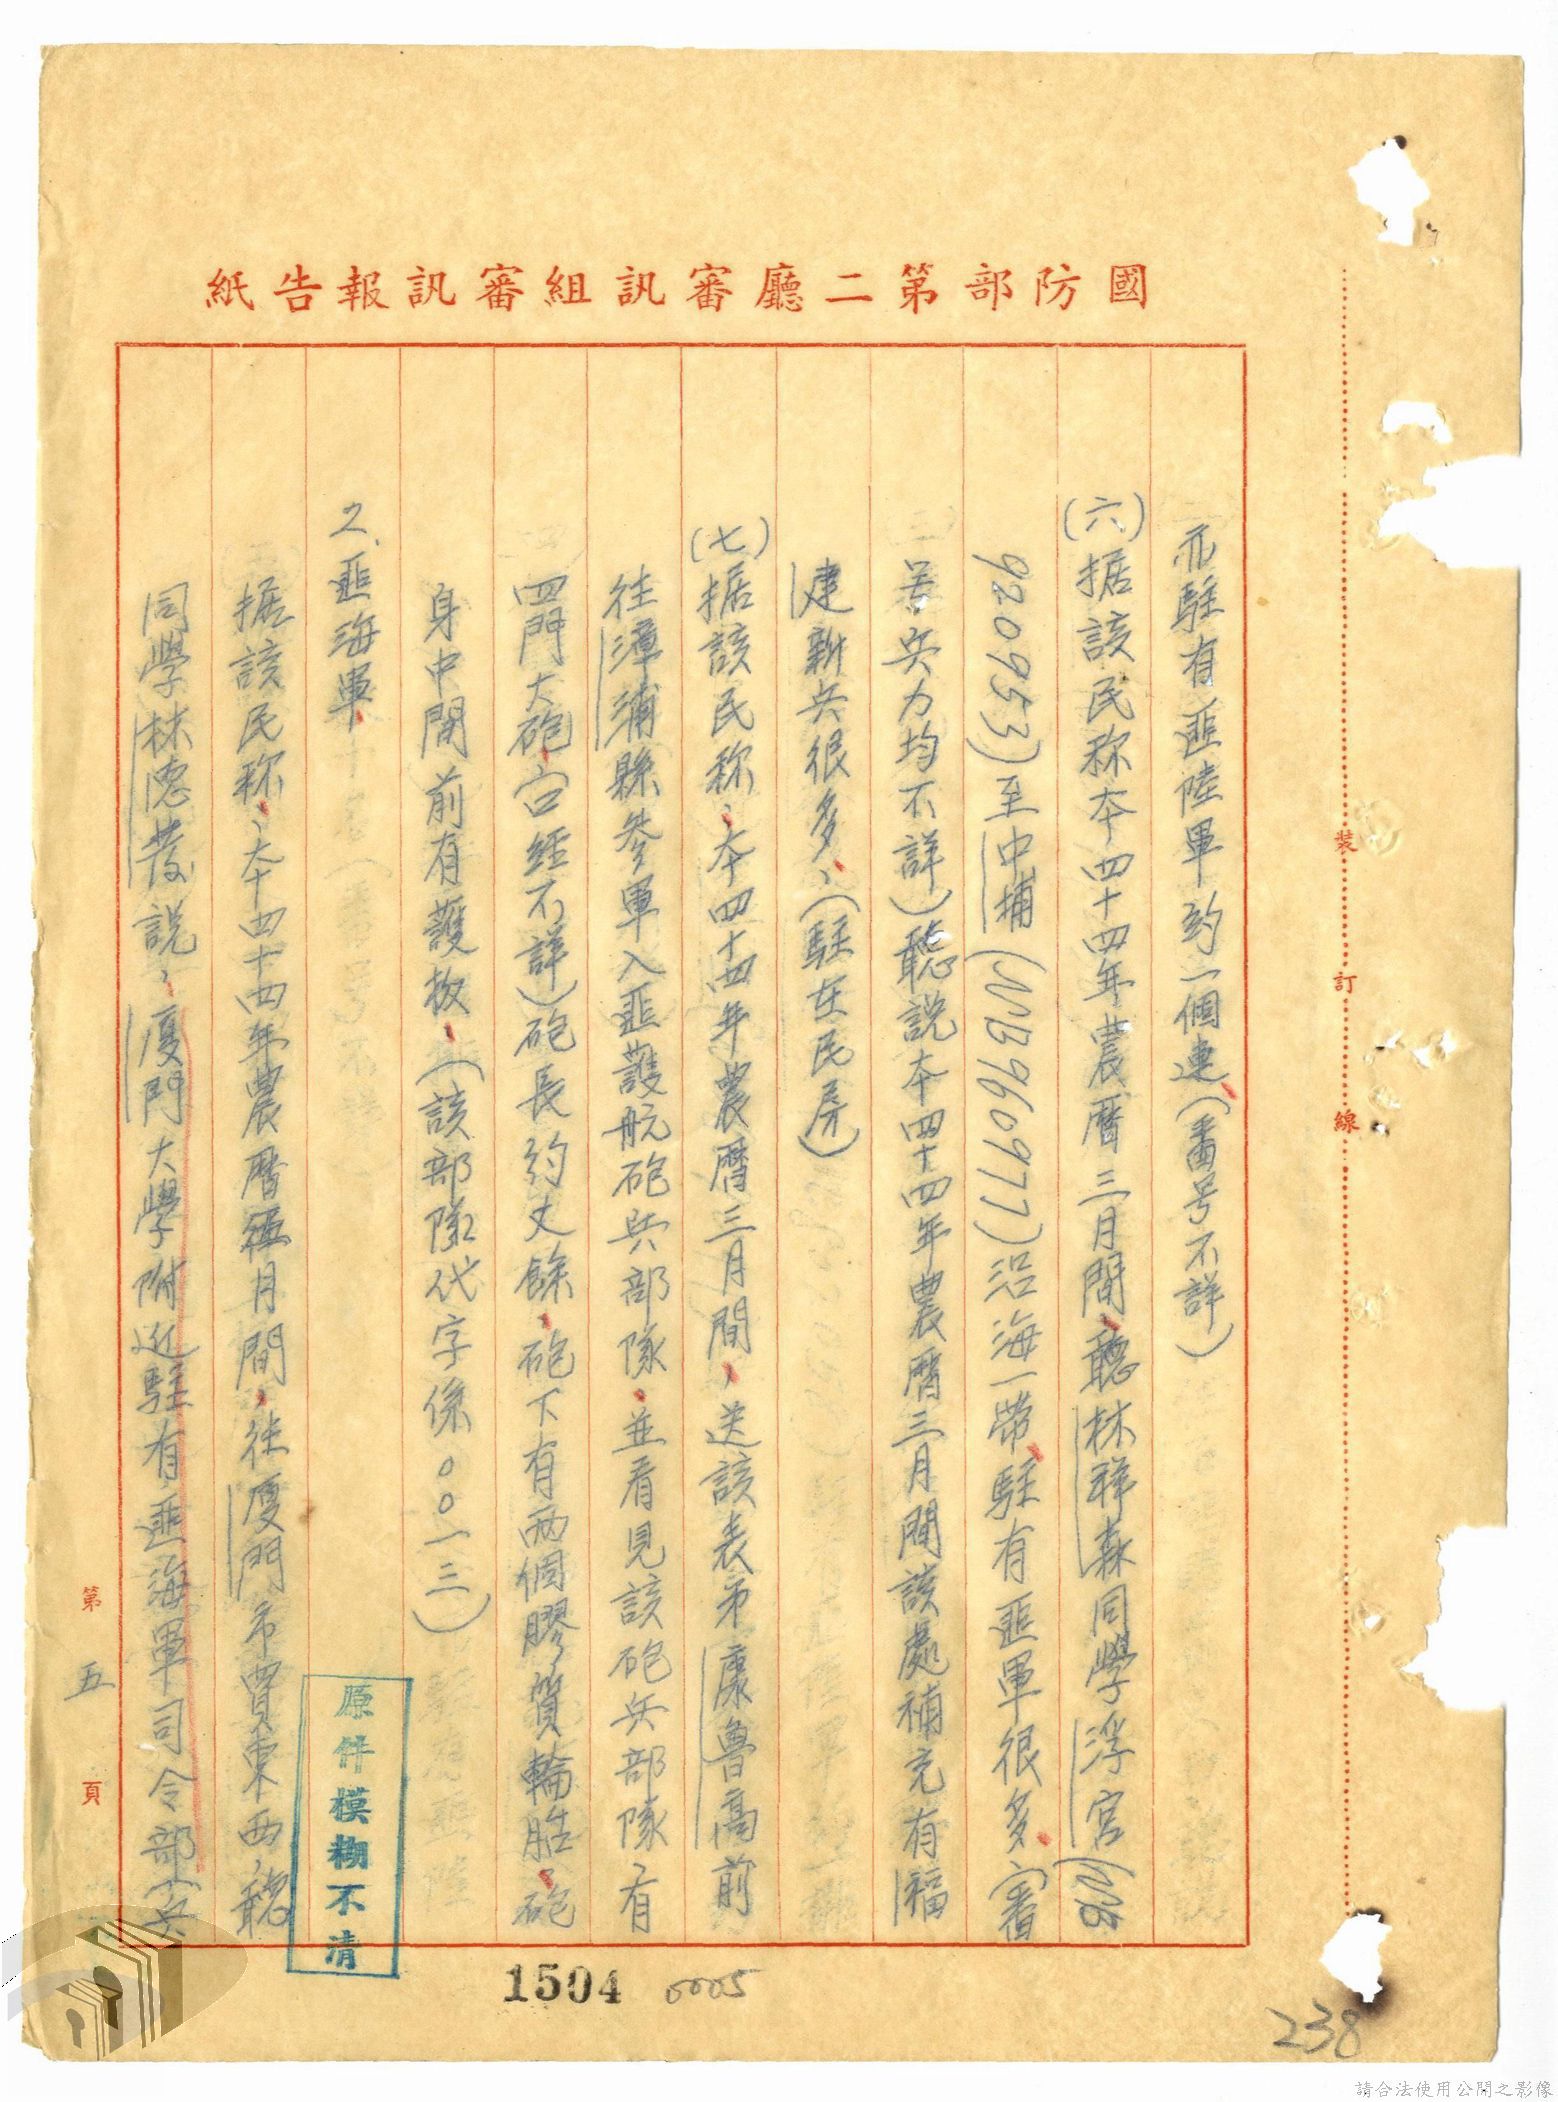 國防部第二廳審訊組審訊報告紙
亦駐有匪陸軍約一個連(番号不詳)
(六)据該民称本四十四年農曆三月間、聽林祥森同學浮宮(
920953)至中埔(WB960977)沿海一帶、駐有匪軍很多、(番
号兵力均不詳)聽說本四十四年農曆三月間該處補充有福
建新兵很多、(駐在民房)
(七)据該民称:本四十四年農曆三月間,送該表弟康魯高前
往漳浦縣參軍入匪護航砲兵部隊,並看見該砲兵部隊有
四門大砲(口經不詳)砲長約丈餘,砲下有兩個膠質輪胎,砲
身中間前有護板,(該部隊代字係〇〇一三)
2.匪海軍
据該民称:本四十四年農曆 月間,往廈門市買東西,聽
同學林德發說:廈門大學附近駐有匪海軍司令部(兵
裝訂線
第五頁
原件模糊不清
1504
0005
238
請合法使用公開之影像